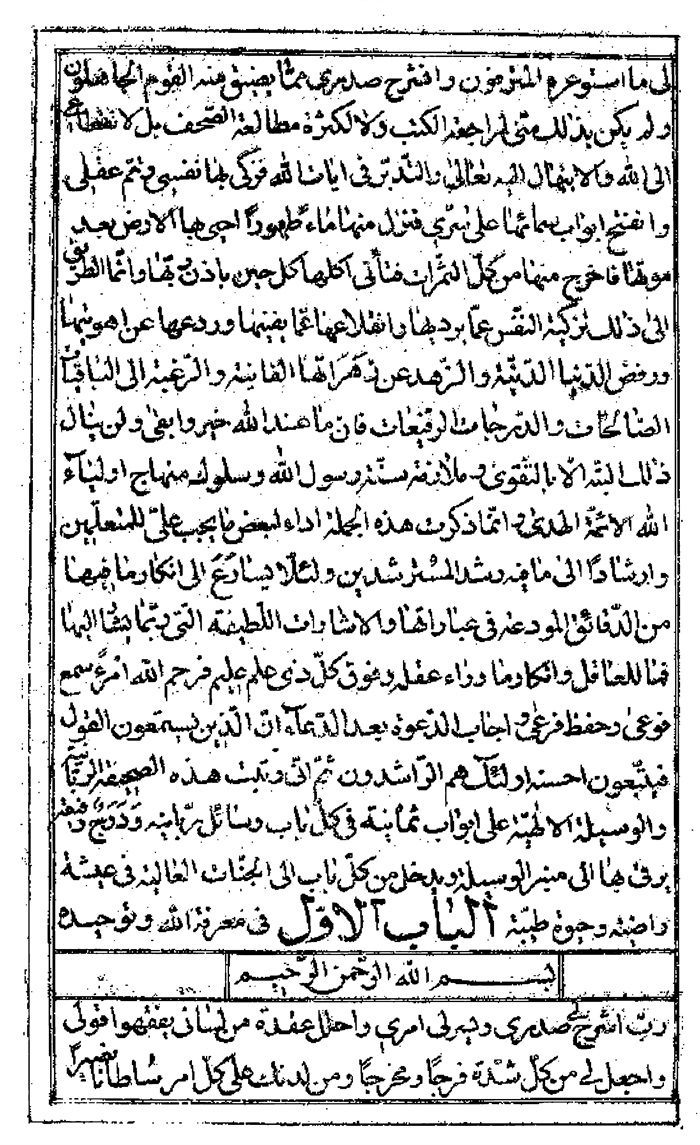 لى ما استوعره المترفون وانشرح صدري عما يضيق منه القوم الجاهلون
ولم يكن بذلك منى لمراجعة الكتب ولا لكثرة مطالعة الصحف بل لانقطاعى
الى الله والابتهال اليه تعالى والتدبر فى ايات الله فزكى بها نفسى وتم عقلى
وانفتح ابواب سمائها على سرى فنزل منها ماء طهورا احيى بها الارض بعد
موتها فاخرج منها من كل الثمرات فتأتى اكلها كل حين باذن ربها وانما الطريق
الى ذلك تزكية النفس عما يرديها وانقلاعها عما يفنيها وردعها عن اهويتها
ورفض الدنيا الدنية والزهد عن زهراتها الفانية والرغبة الى الباقيات
الصالحات والدرجات الرفيعات فان ما عند الله خير وابقى ولن ينال
ذلك البتة الا بالتقوى وملازمة سنة رسول الله وسلوك منهاج اولياء
الله الائمة الهدى وانما ذكرت هذه الجملة اداء لبعض ما يجب على للمتعلمين
وارشادا الى ما فيه رشد المسترشدين ولئلا يسارع الى انكار ما فيها
من الدقائق المودعة فى عباراتها والاشارات اللطيفة التى ربما يشار اليها
فما للعاقل وانكار ما وراء عقله وفوق كل ذى علم عليم فرحم الله امرء سمع
فوعى وحفظ فرعى واجاب الدعوة بعد الدعاء ان الذين يستمعون القول
فيتبعون احسنه اولئك هم الراشدون ثم انى رتبت هذه الصحيفة الربانية
والوسيلة الالهية على ابواب ثمانية فى كل باب وسائل ربانية ودرج رفيعة
يرقى بها الى منبر الوسيلة ويدخل من كل باب الى الجنات العالية فى عيشة
راضية وحيوة طيبة الباب الاول فى معرفة الله وتوحيده
بسم الله الرحمن الرحيم
رب اشرح لى صدرى ويسر لى امرى واحلل عقدة من لسانى يفقهوا قولى
واجعل لى من كل شدة فرجا ومخرجا ومن لدنك على كل امر سلطانا نصيرا